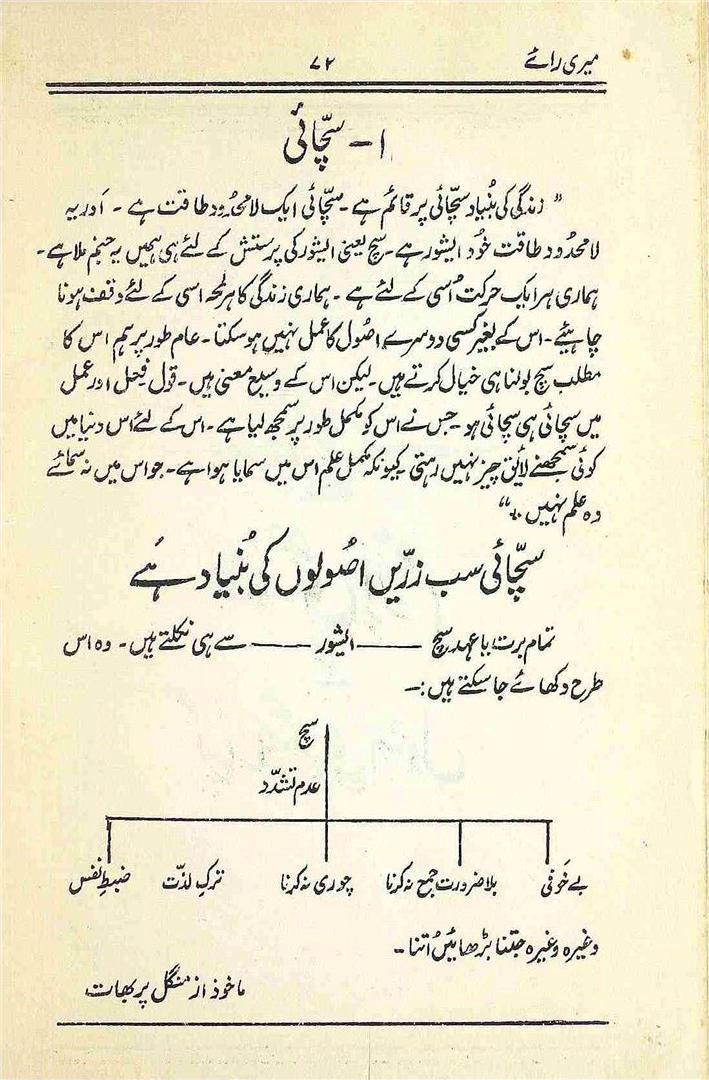 میری رائے ۷۲
۱ - سچّائی
" زندگی کی بُنیاد سچّائی پر قائم ہے۔ سچّائی ایک لامحدُود طاقت ہے ۔ اَور یہ
لامحدُود طاقت خُود ایشور ہے۔ سچ یعنی ایشور کی پرستش کے لئے ہی ہمیں یہ جنم ملا ہے۔
ہماری ہر ایک حرکت اُسی کے لئے ہے ۔ ہماری زندگی کا ہر لمحہ اسی کے لئے وقف ہونا
چاہیئے۔ اس کے بغیر کسی دوسرے اصُول کا عمل نہیں ہو سکتا۔ عام طور پر ہم اس کا
مطلب سچ بولنا ہی خیال کرتے ہیں۔ لیکن اس کے وسیع معنی ہیں۔ قول فِعل اور عمل
میں سچّائی ہی سچّائی ہو۔ جس نے اس کو مکمل طور پر سمجھ لیا ہے۔ اس کے لئے اس دنیا میں
کوئی سمجھنے لائق چیز نہیں رہتی۔ کیونکہ مکمل علم اس میں سمایا ہوا ہے۔ جو اس میں نہ سمائے
وہ علم نہیں ۔"
سچّائی سب زرّیں اصُولوں کی بُنیاد ہَے
تمام برت یا عہد سچ ——— ایشور ——— سے ہی نکلتے ہیں۔ وہ اس
طرح دکھائے جا سکتے ہیں:۔
سچ
عدم تشدّد
بے خَوفی بلا ضرورت جمع نہ کرنا چوری نہ کرنا ترکِ لذّت ضبطِ نفس
وغیرہ وغیرہ جتنا بڑھائیں اُتنا۔
ماخوذ از منگل پربھات